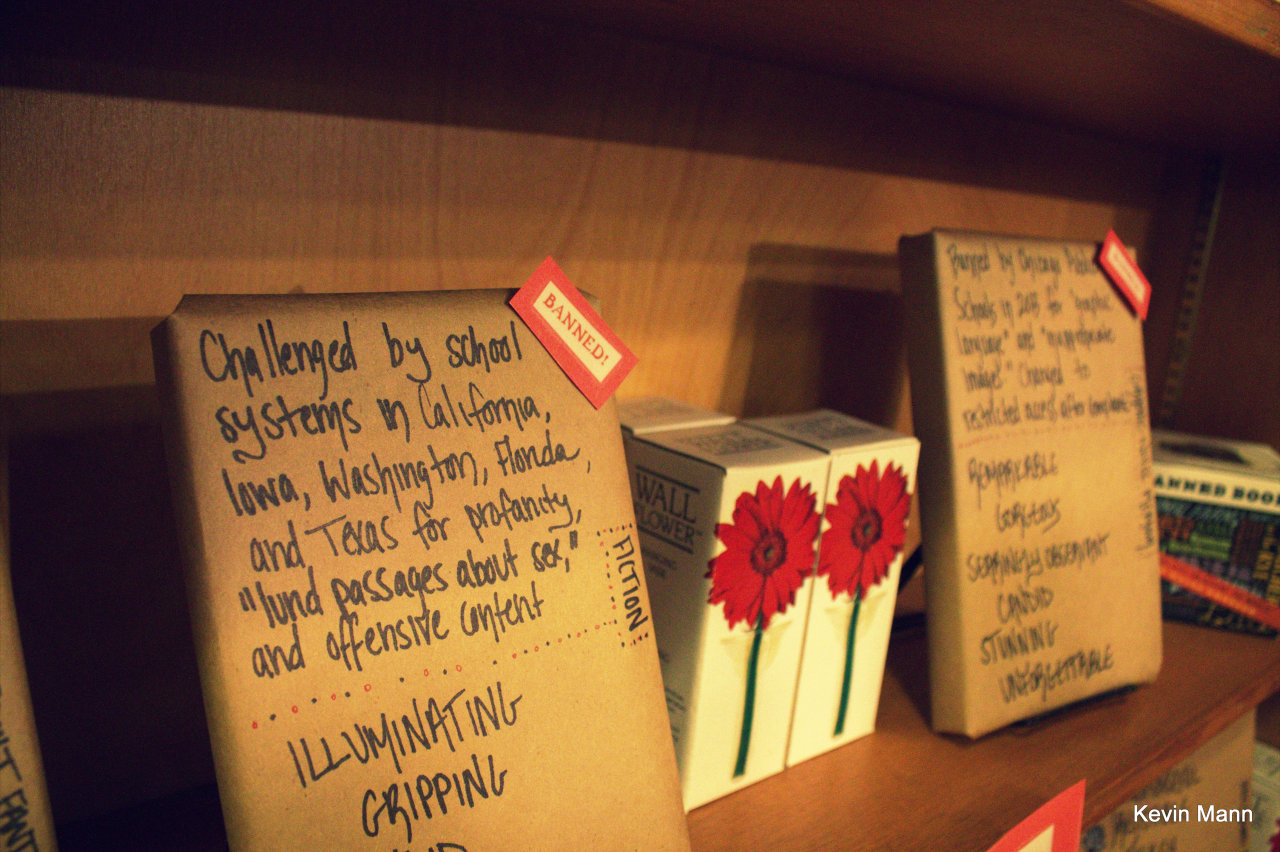 Challenged by school
systems in California,
Iowa, Washington, Florida,
and Texas for profanity,
"lurid passages about sex,"
and offensive content
FICTION
ILLUMINATING
GRIPPING
BANNED!
WALL
FLOWER
Banned by Chicago Public
Schools in 2013 for "graphic
language" and "inappropriate
images" Changed to
restricted access after complaints
REMARKABLE
GORGEOUS
SEARINGLY OBSERVANT
CANDID
STUNNING
UNFORGETTABLE
BANNED BOOK
Kevin Mann